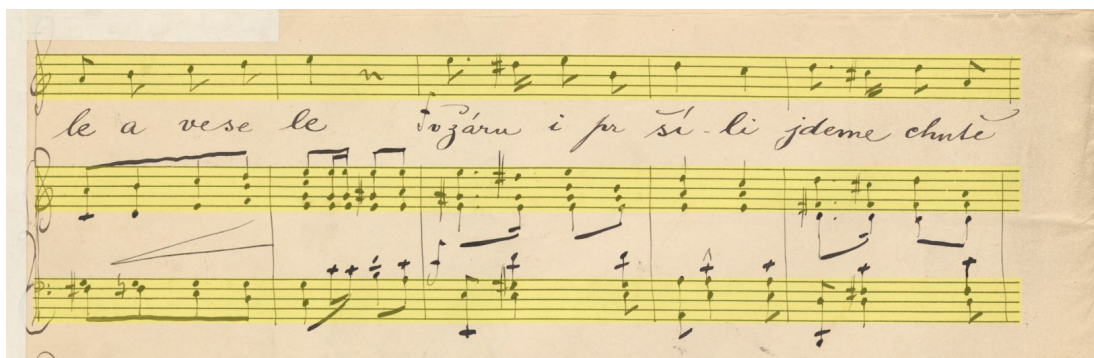 le a vese le f vzáru i pr ší-li jdeme chutě
f